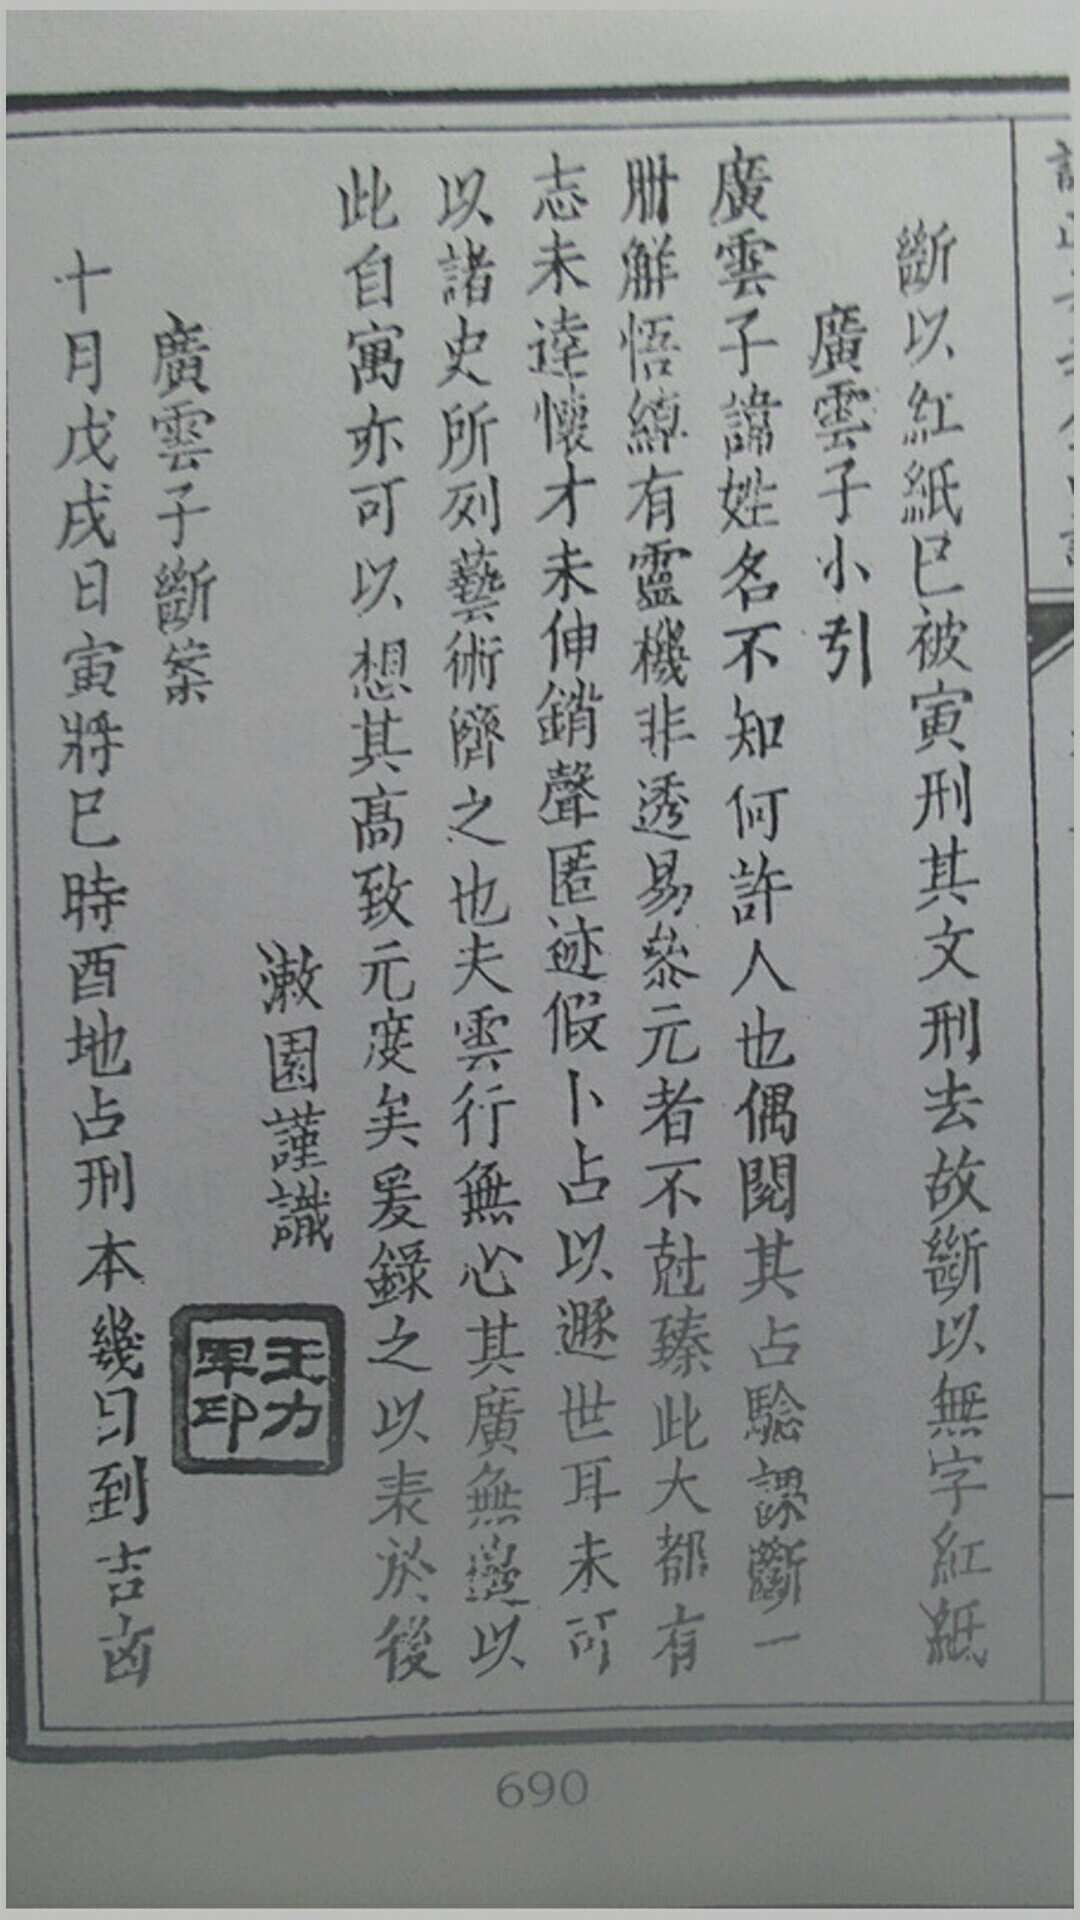 斷以紅紙巳被寅刑其文刑去故斷以無字紅紙
廣雲子小引
廣雲子諱姓名不知何許人也偶閱其占驗課斷一
冊解悟綽有靈機非透易叅元者不尅臻此大都有
志未達懷才未伸銷聲匿迹假卜占以遯世耳未可
以諸史所列藝術儕之也夫雲行無心其廣無邊以
此自寓亦可以想其高致元度矣爰錄之以表於後
漱園謹識
王力
軍印
廣雲子斷案
十月戊戌日寅將巳時酉地占刑本幾日到吉凶
690